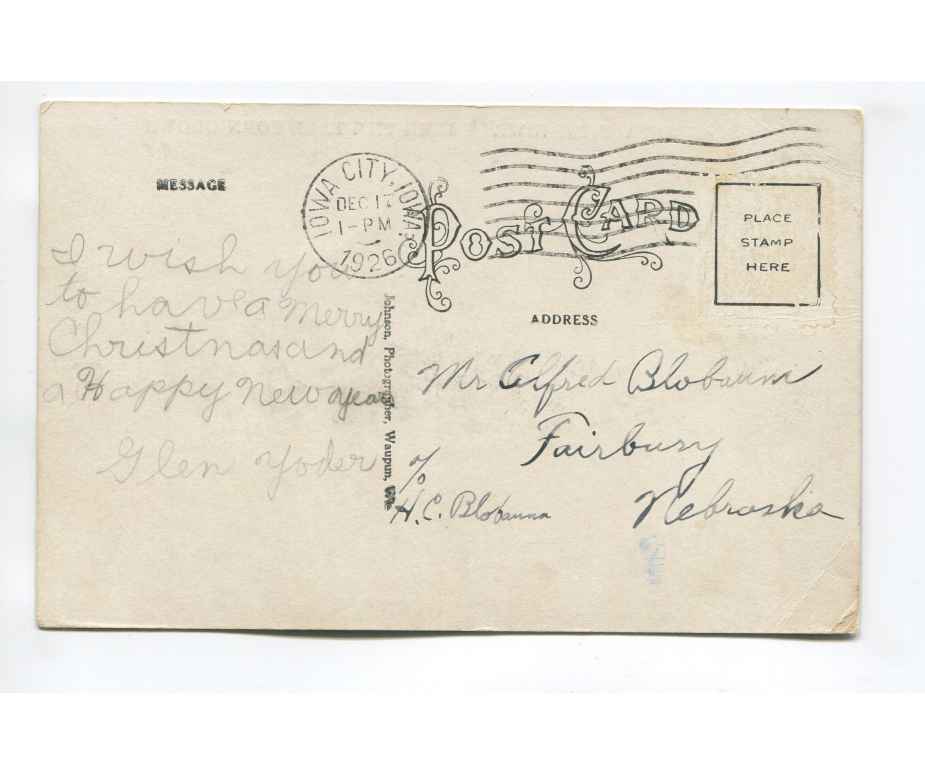 MESSAGE
IOWA CITY, IOWA.
DEC 17
1-PM
1926
POST CARD
PLACE
STAMP
HERE
ADDRESS
I wish you
to have a Merry
Christmas and
a Happy New year
Glen Yoder
Johnson, Photographer, Waupun, Wis.
Mr Alfred Blobaum
Fairbury
Nebraska
c/o
H.C. Blobaum